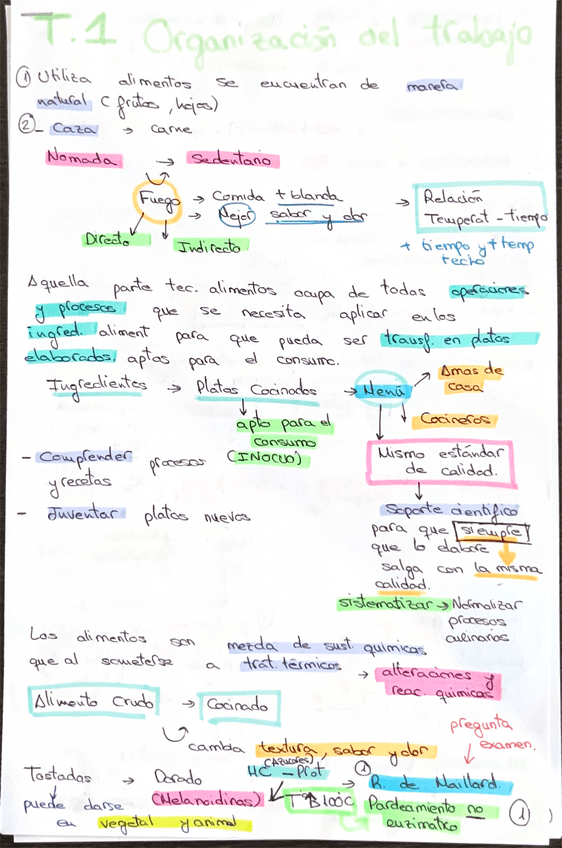 T.1 Organización del trabajo
① Utiliza alimentos se encuentran de manera
natural (frutos, hojas)
②- Caza → carne
Nomada → Sedentario
Fuego → Comida + blanda → Relación
→ Mejor sabor y olor Temperat - tiempo
Directo Indirecto + tiempo y + temp
techo
Aquella parte tec. alimentos ocupa de todas operaciones
y procesos que se necesita aplicar en los
ingred. aliment para que pueda ser transf. en platos
elaborados, aptos para el consumo.
Ingredientes → Platos Cocinados → Menú → Amas de
casa
apto para el Cocineros
consumo
(INOCUO)
Mismo estándar
de calidad.
- Comprender procesos
y recetas
- Inventar platos nuevos
Soporte científico
para que siempre
que lo elabore
salga con la misma
calidad.
sistematizar → Normalizar
procesos
culinarios
Los alimentos son mezcla de sust. quimicas
que al someterse a trat. térmicos → alteraciones y
reac. quimicas
Alimento Crudo → Cocinado
cambia textura, sabor y olor
pregunta
examen.
(Azucares)
Tostadas → Dorado HC - Prot → ① R. de Maillard.
puede darse (Melanoidinas) Tª 100ºC Pardeamiento no
en vegetal y animal enzimático
①